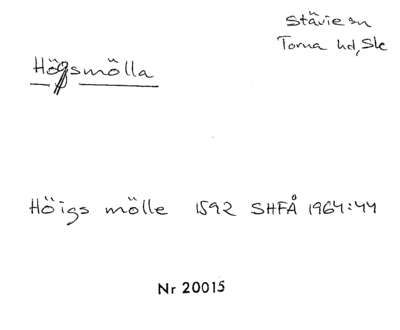 Stävie sn
Torna hd, Sk
Högsmölla
Höigs mölle 1592 SHFÅ 1964:44
Nr 20015